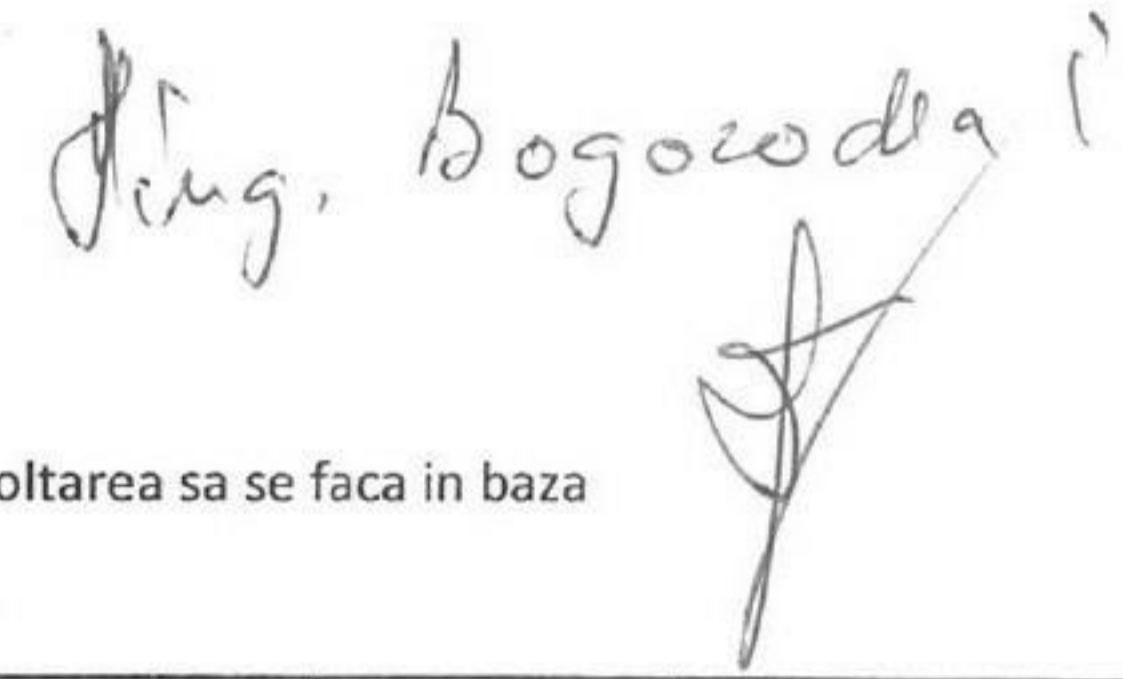 ing. Bogorodea i
oltarea sa se faca in baza